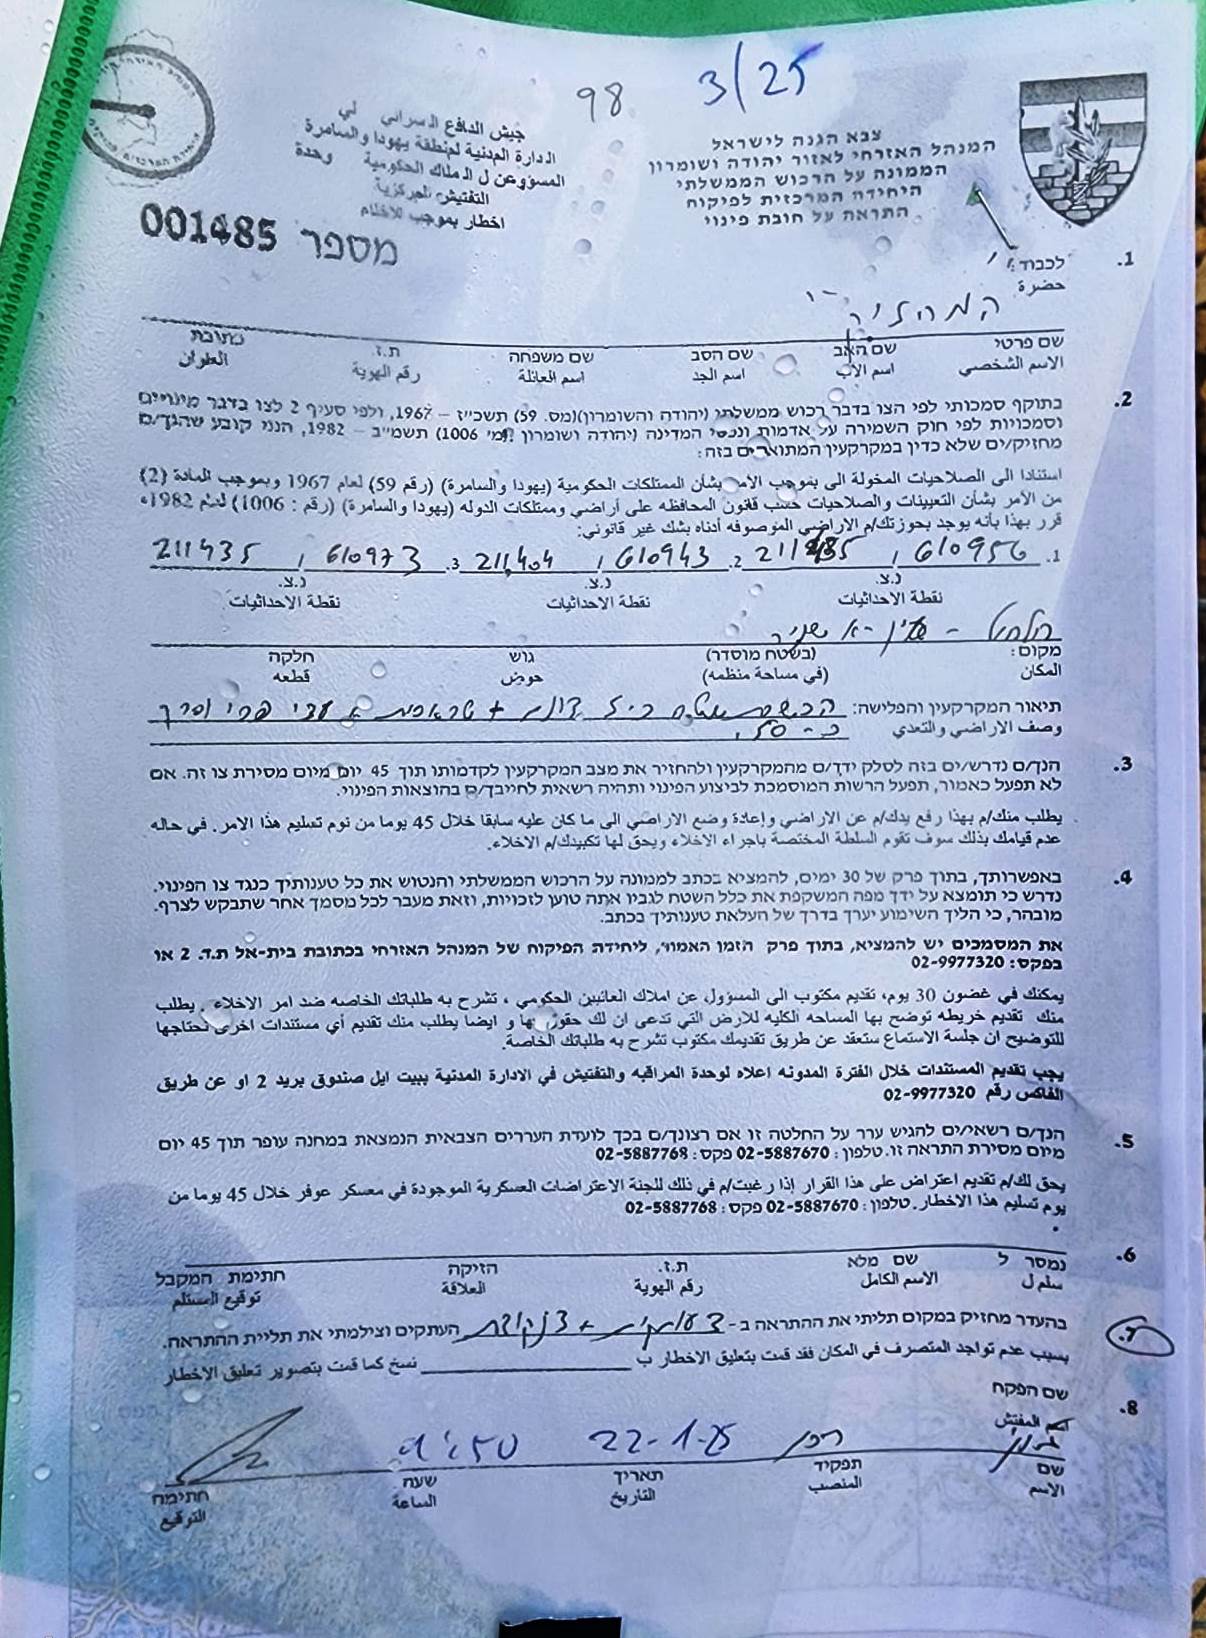 98
3/25
צבא הגנה לישראל
המנהל האזרחי לאזור יהודה ושומרון
הממונה על הרכוש הממשלתי
היחידה המרכזית לפיקוח
התראה על חובת פינוי
جيش الدافع الاسرائي لي
الادارة المدنية لمنطقة يهودا والسامرة
المسؤوعن ل الاملاك الحكومية وحدة
التفتيش المركزية
اخطار بموجب للاخلام
מספר 001485
1. לכבוד:
חضרה
המחזיק
שם פרטי שם האב שם הסב שם משפחה ת.ז. כתובת
الاسم الشخصي اسم الاب اسم الجد اسم العائلة رقم الهوية العنوان
2. בתוקף סמכותי לפי הצו בדבר רכוש ממשלתי (יהודה והשומרון)(מס. 59) תשכ״ז – 1967, ולפי סעיף 2 לצו בדבר מינויים
וסמכויות לפי חוק השמירה על אדמות ונכסי המדינה (יהודה ושומרון) (מ׳ 1006) תשמ״ב – 1982, הנני קובע שהנך/ם
מחזיק/ים שלא כדין במקרקעין המתוארים בזה:
استنادا الى الصلاحيات المخولة الى بموجب الامر بشأن الممتلكات الحكومية (يهودا والسامرة) (رقم 59) لعام 1967 وبموجب المادة (2)
من الامر بشأن التعيينات والصلاحيات حسب قانون المحافظه على أراضي وممتلكات الدوله (يهودا والسامرة) (رقم : 1006) لعام 1982،
قرر بهذا بأنه يوجد بحوزتك/م الاراضي الموصوفه أدناه بشك غير قانوني:
1. 610956 / 2. 610943 / 211404 3. 610973 / 211435
נ.צ. נ.צ. נ.צ.
نقطة الاحداثيات نقطة الاحداثيات نقطة الاحداثيات
מקום: (בשטח מוסדר) גוש חלקה
المكان (في مساحة منظمه) حوض قطعه
תיאור המקרקעין והפלישה: הכשרת שטח
وصف الاراضي والتعدي
3. הנך/ם נדרש/ים בזה לסלק ידך/ם מהמקרקעין ולהחזיר את מצב המקרקעין לקדמותו תוך 45 יום מיום מסירת צו זה. אם
לא תפעל כאמור, תפעל הרשות המוסמכת לביצוע הפינוי ותהיה רשאית לחייבך/ם בהוצאות הפינוי.
يطلب منك/م بهذا رفع يدك/م عن الاراضي وإعادة وضع الاراضي الى ما كان عليه سابقا خلال 45 يوما من نوم تسليم هذا الامر. في حاله
عدم قيامك بذلك سوف تقوم السلطة المختصة باجراء الاخلاء ويحق لها تكبيدك/م الاخلاء.
4. באפשרותך, בתוך פרק של 30 ימים, להמציא בכתב לממונה על הרכוש הממשלתי והנטוש את כל טענותיך כנגד צו הפינוי.
נדרש כי תומצא על ידך מפה המשקפת את כלל השטח לגביו אתה טוען לזכויות, וזאת מעבר לכל מסמך אחר שתבקש לצרף.
מובהר, כי הליך השימוע יערך בדרך של העלאת טענותיך בכתב.
את המסמכים יש להמציא, בתוך פרק הזמן האמור, ליחידה הפיקוח של המנהל האזרחי בכתובת בית-אל ת.ד. 2 או
בפקס: 02-9977320
يمكنك في غضون 30 يوم، تقديم مكتوب الى المسؤول عن املاك الغائبين الحكومي ، تشرح به طلباتك الخاصه ضد امر الاخلاء. يطلب
منك تقديم خريطه توضح بها المساحه الكليه للارض التي تدعى ان لك حقوق بها و ايضا يطلب منك تقديم أي مستندات اخرى تحتاجها
للتوضيح ان جلسة الاستماع ستعقد عن طريق تقديمك مكتوب تشرح به طلباتك الخاصة.
يجب تقديم المستندات خلال الفترة المدونه اعلاه لوحدة المراقبه والتفتيش في الادارة المدنية ببيت ايل صندوق بريد 2 او عن طريق
الفاكس رقم 02-9977320
5. הנך/ם רשאי/ים להגיש ערר על החלטה זו אם רצונך/ם בכך לועדת העררים הצבאית הנמצאת במחנה עופר תוך 45 יום
מיום מסירת התראה זו. טלפון: 02-5887670 פקס: 02-5887768
يحق لك/م تقديم اعتراض على هذا القرار إذا رغبت/م في ذلك للجنة الاعتراضات العسكرية الموجودة في معسكر عوفر خلال 45 يوما من
يوم تسليم هذا الاخطار. טלפון: 02-5887670 פקס: 02-5887768
6. נמסר ל שם מלא ת.ז. הזיקה חתימת המקבל
سلم ل الاسم الكامل رقم الهوية العلاقة توقيع المستلم
7. בהעדר מחזיק במקום תליתי את ההתראה ב- העתקים וצילמתי את תליית ההתראה.
بسبب عدم تواجد المتصرف في المكان فقد قمت بتعليق الاخطار ב نسخ كما قمت بتصوير تعليق الاخطار
8. שם הפקח
اسم المفتش
רכז 22-1-25 9:50
שם תפקיד תאריך שעה חתימה
الاسم المنصب التاريخ الساعة التوقيع